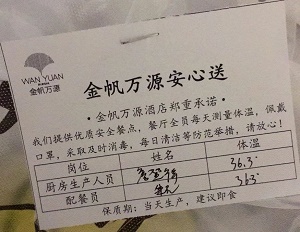 WAN YUAN
金帆万源
金帆万源安心送
·金帆万源酒店郑重承诺·
我们提供优质安全餐点，餐厅全员每天测量体温，佩戴
口罩，采取及时消毒，每日清洁等防范举措，请放心！
岗位 姓名 体温
厨房生产人员 36.3°
配餐员 363°
保质期：当天生产，建议即食